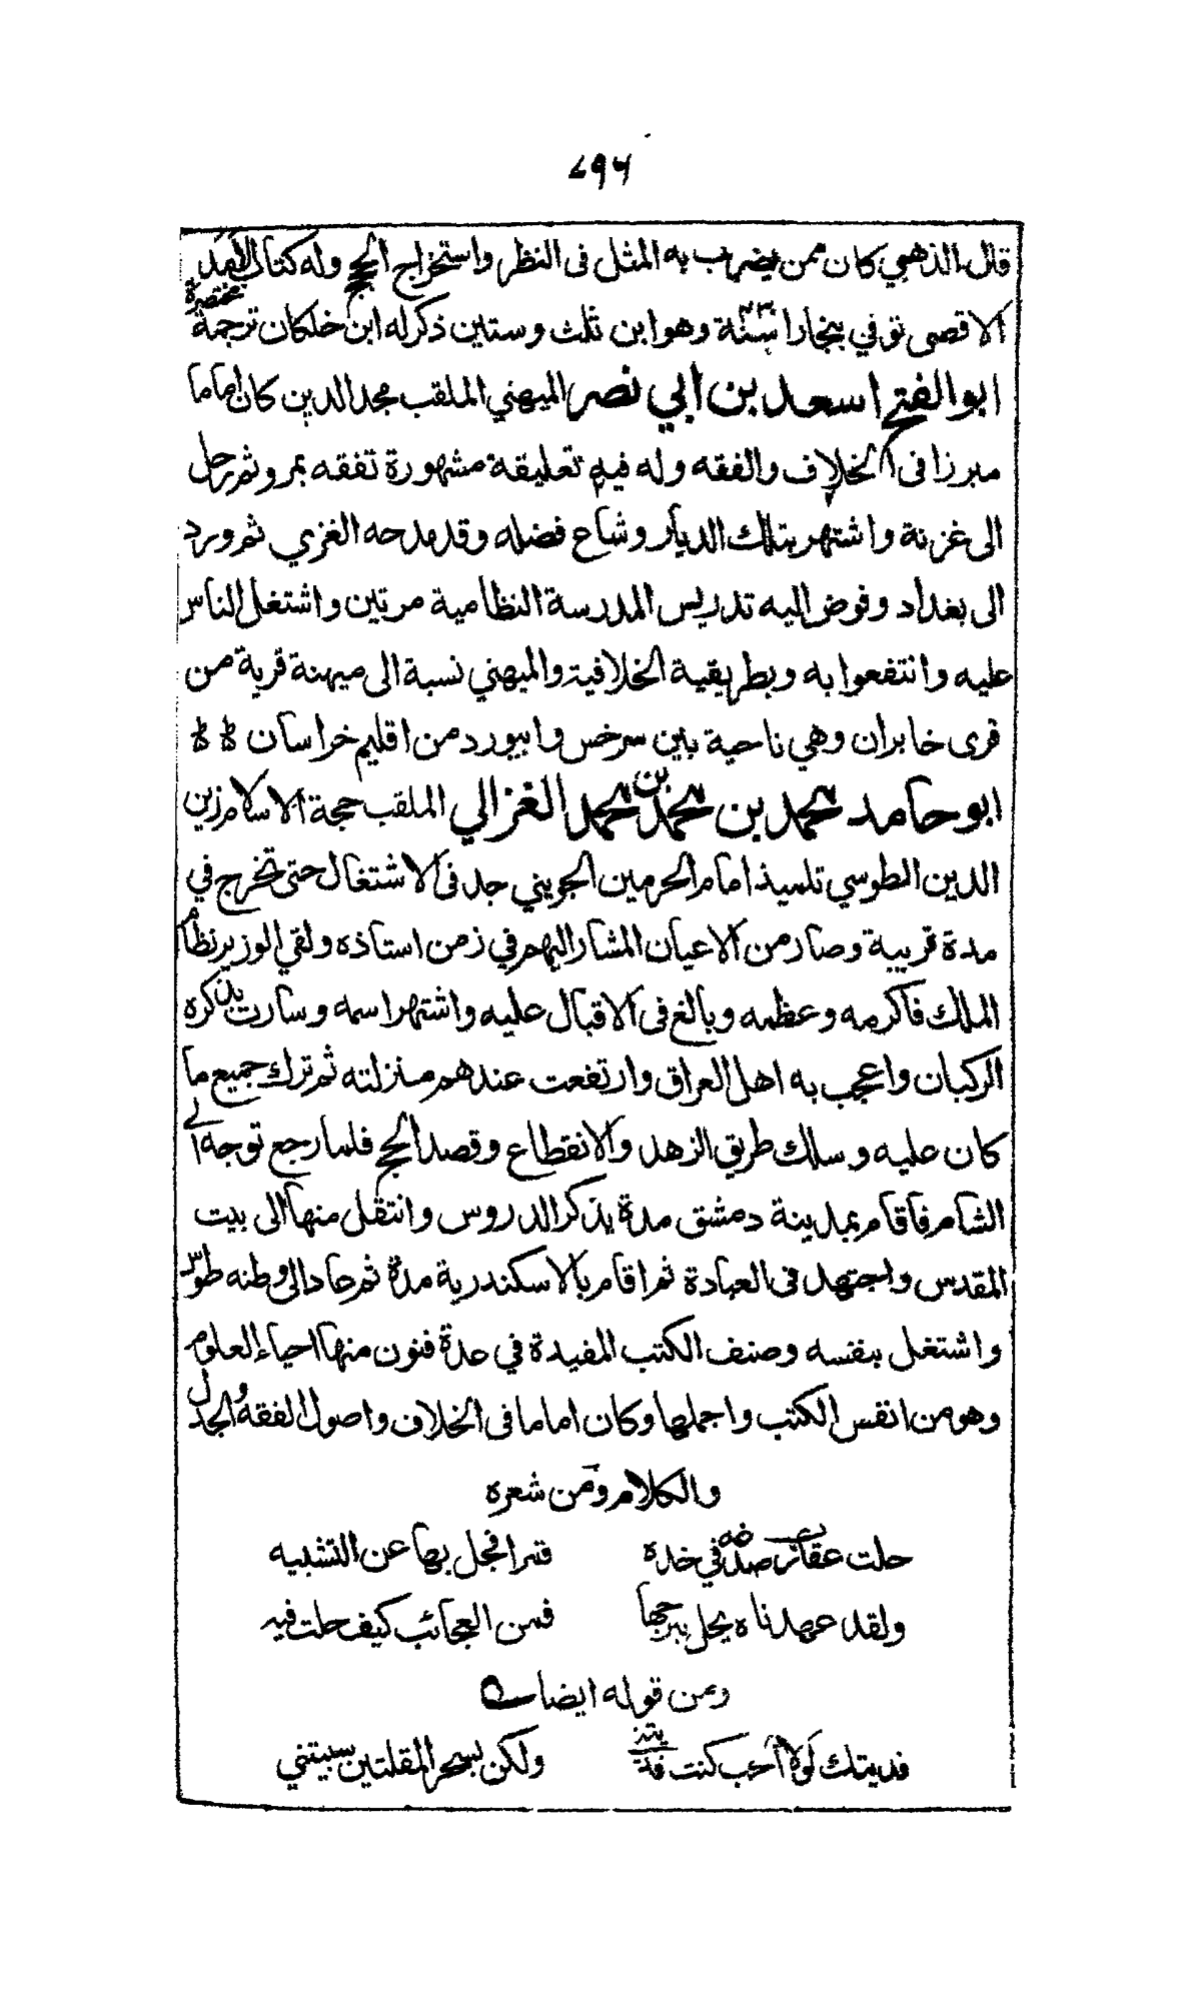 ٧٩٦
قال الذهبي كان ممن يضرب به المثل فى النظر واستخراج الحجج وله كتاب الامد
الاقصى توفي ببخارا سنة وهو ابن ثلث وستين ذكرله ابن خلكان ترجمة مختصرة
ابو الفتح اسعد بن ابي نصر الميهني الملقب مجد الدين كان اماما
مبرزا فى الخلاف والفقه وله فيه تعليقة مشهورة تفقه بمرو ثم رحل
الى غزنة واشتهر بتلك الديار وشاع فضله وقد مدحه الغزي ثم ورد
الى بغداد وفوض اليه تدريس المدرسة النظامية مرتين واشتغل الناس
عليه وانتفعوا به وبطريقية الخلافية والميهني نسبة الى ميهنة قرية من
قرى خابران وهي ناحية بين سرخس وابيورد من اقليم خراسان
ابو حامد محمد بن محمد بن محمد الغزالي الملقب حجة الاسلام زين
الدين الطوسي تلميذ امام الحرمين الجويني جد فى الاشتغال حتى تخرج في
مدة قريبة وصار من الاعيان المشار اليهم في زمن استاذه ولقي الوزير نظام
الملك فاكرمه وعظمه وبالغ فى الاقبال عليه واشتهر اسمه وسارت بذكره
الركبان واعجب به اهل العراق وارتفعت عندهم منزلته ثم ترك جميع ما
كان عليه وسلك طريق الزهد والانقطاع وقصد الحج فلما رجع توجه الى
الشام فاقام بمدينة دمشق مدة يذكر الدروس وانتقل منها الى بيت
المقدس واجتهد فى العبادة ثم اقام بالاسكندرية مدة ثم عاد الى وطنه طوس
واشتغل بنفسه وصنف الكتب المفيدة في عدة فنون منها احياء العلوم
وهو من انفس الكتب واجملها وكان اماما فى الخلاف واصول الفقه والجدل
والكلام ومن شعره
حلت عقارب صدغه في خده قمرا فجل بها عن التشبيه
ولقد عهدناه يحل ببرجها فمن العجائب كيف حلت فيه
ومن قوله ايضا
فديتك لولا الحب كنت فديتني ولكن بسحر المقلتين سبيتني